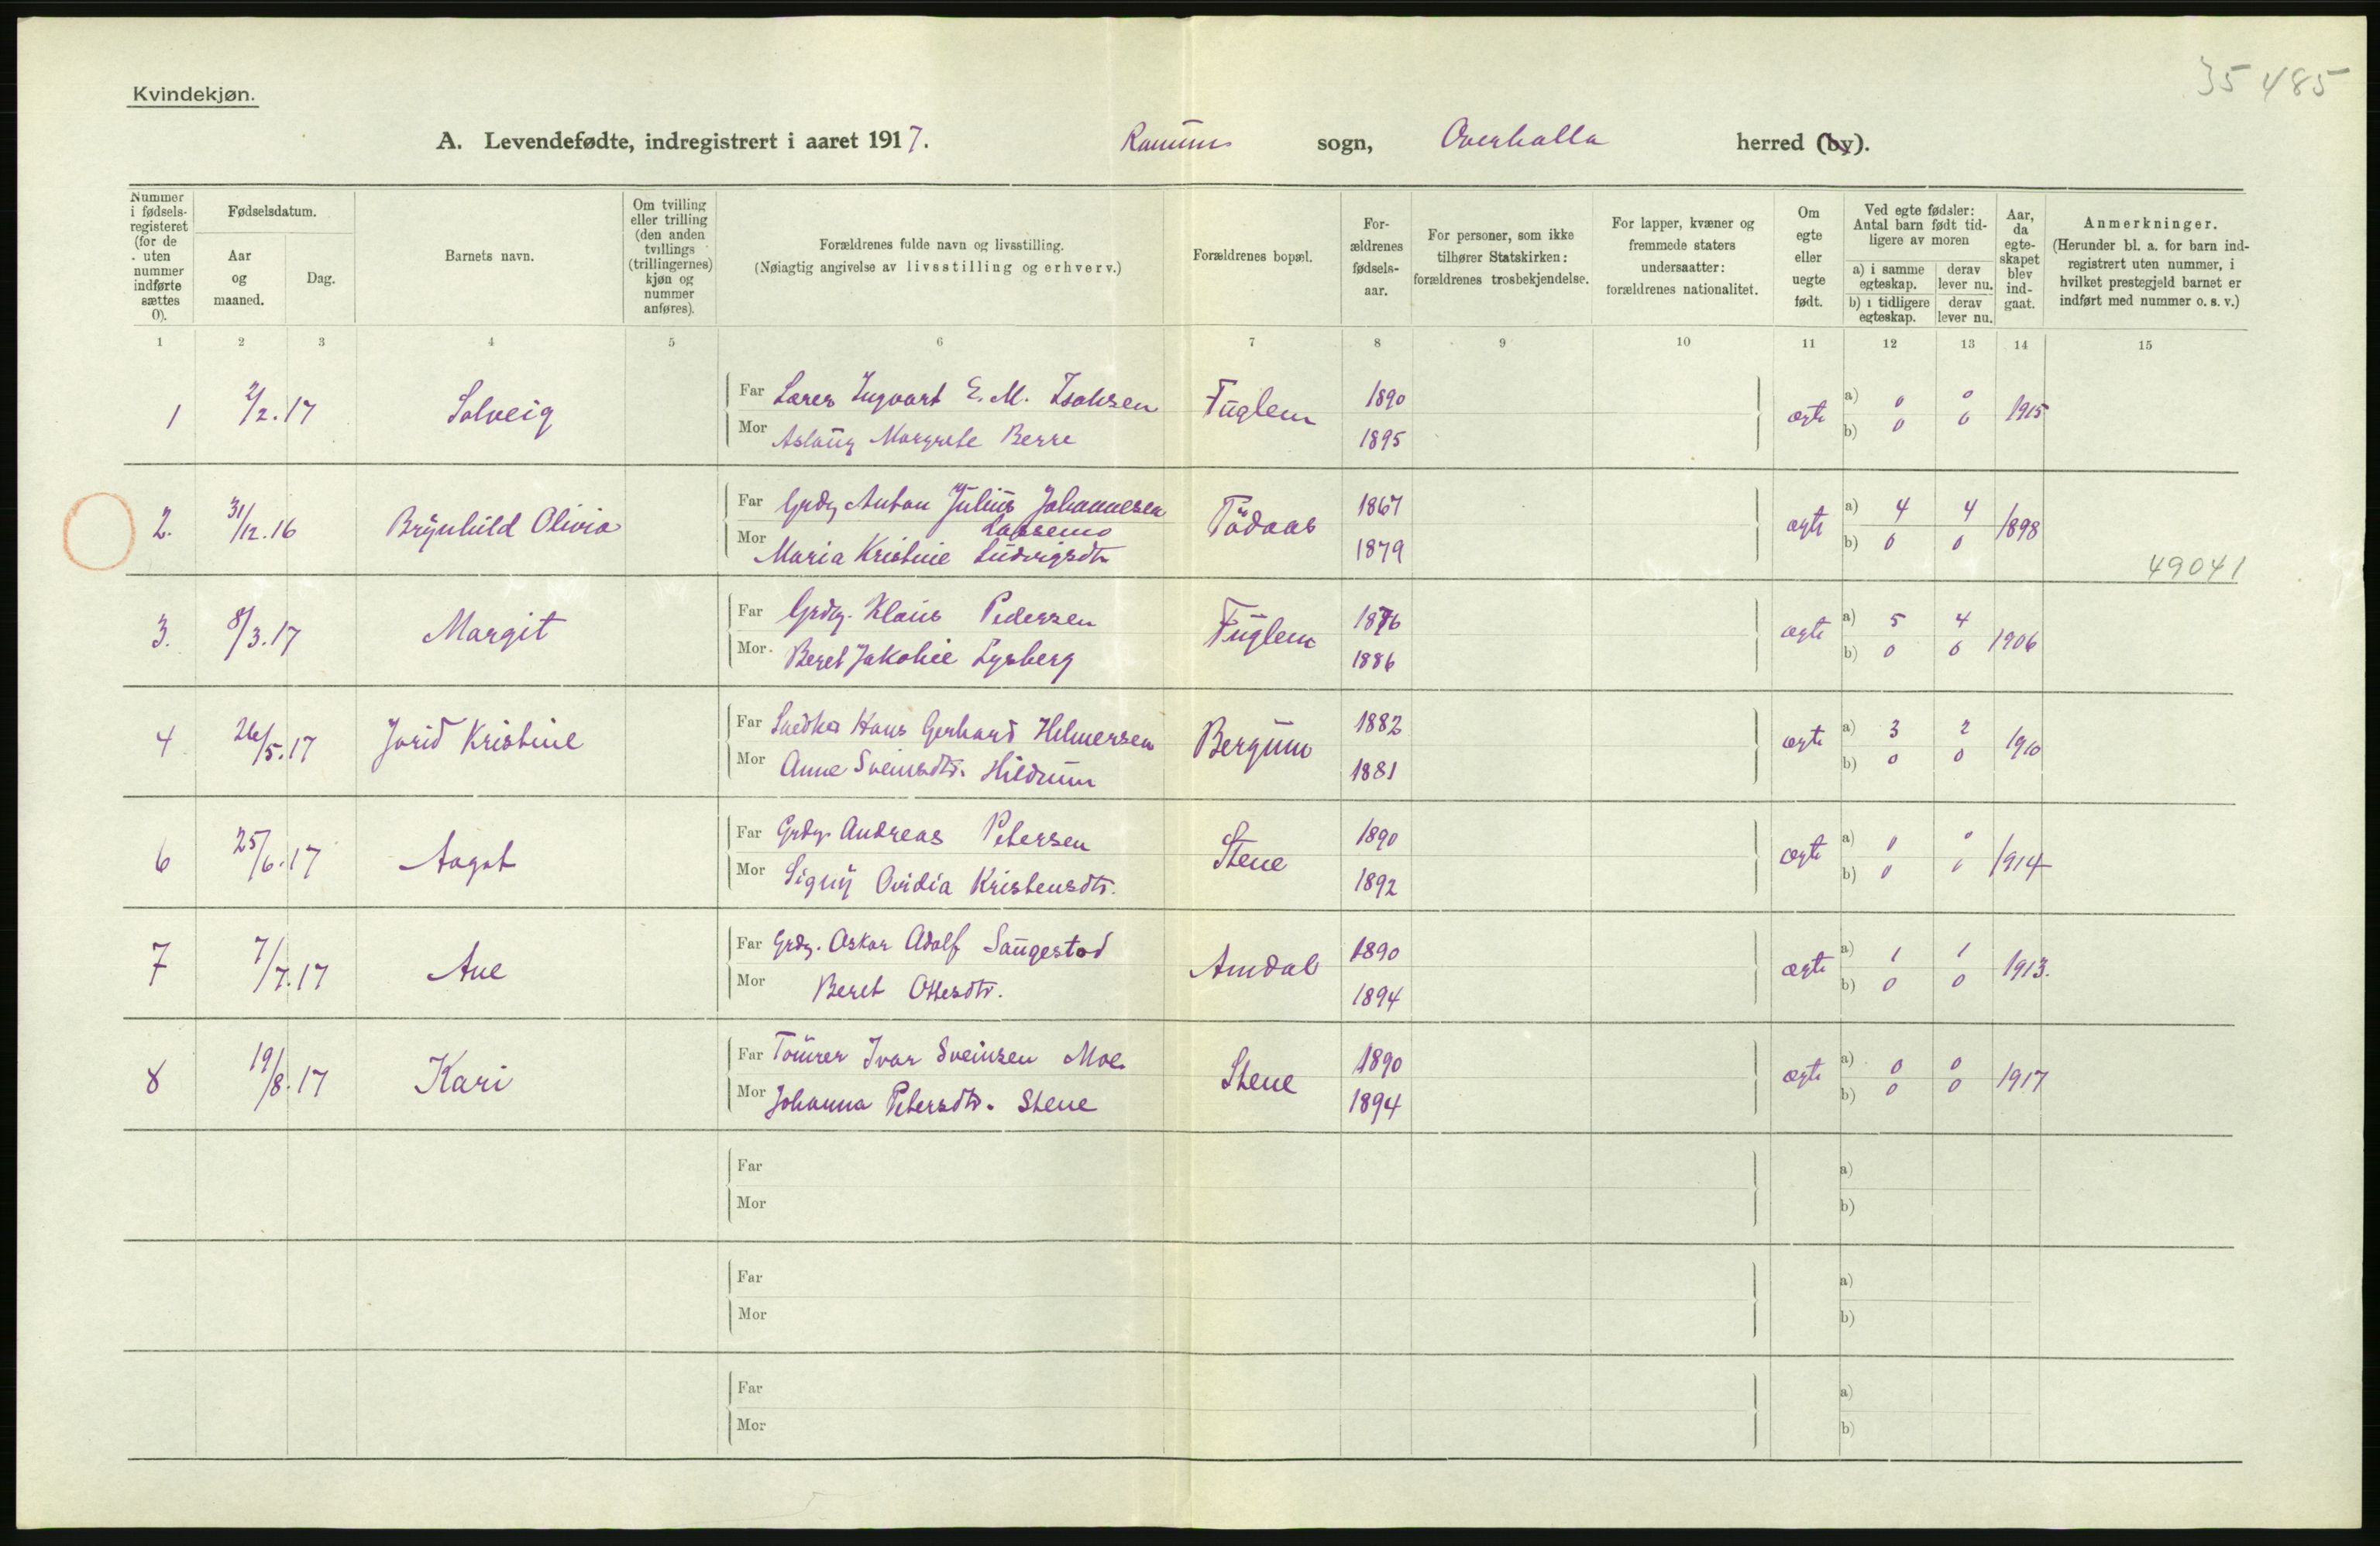 35 485
Kvindekjøn.
A. Levendefødte, indregistrert i aaret 1917. Ranum sogn, Overhalla herred (by).
Nummer i fødsels-registeret (for de uten nummer indførte sættes 0).
Fødselsdatum.
Aar og maaned.
Dag.
Barnets navn.
Om tvilling eller trilling (den anden tvillings (trillingernes) kjøn og nummer anføres).
Forældrenes fulde navn og livsstilling.
(Nøiagtig angivelse av livsstilling og erhverv.)
Forældrenes bopæl.
For-ældrenes fødsels-aar.
For personer, som ikke tilhører Statskirken: forældrenes trosbekjendelse.
For lapper, kvæner og fremmede staters undersaatter: forældrenes nationalitet.
Om egte eller uegte født.
Ved egte fødsler: Antal barn født tid-ligere av moren
a) i samme egteskap. derav lever nu.
b) i tidligere egteskap. derav lever nu.
Aar, da egte-skapet blev ind-gaat.
Anmerkninger.
(Herunder bl. a. for barn ind-registrert uten nummer, i hvilket prestegjeld barnet er indført med nummer o. s. v.)
1 2 3 4 5 6 7 8 9 10 11 12 13 14 15
1 2/2.17 Solveig Far Lærer Ingvart E. M. Isaksen Fuglem 1890 egte a) 0 0 1915
Mor Aslaug Margrete Berre 1895 b) 0 0
2. 31/12.16 Brynhild Olivia Far Grdr. Anton Julius Johannesen Lassemo Rødaas 1867 egte a) 4 4 1898
Mor Maria Kristine Ludvigsdtr 1879 b) 0 0
49041
3. 8/3.17 Margit Far Grdr. Klaus Pedersen Fuglem 1876 egte a) 5 4 1906
Mor. Beret Jakobie Lysberg 1886 b) 0 0
4 26/5.17 Jorid Kristine Far Hans Gerhard Hilmersen Bergum 1882 egte a) 3 2 1910
Mor Anne Sveinsdtr. Hildrum 1881 b) 0 0
6 25/6.17 Aagot Far Grdr. Andreas Petersen Stene 1890 egte a) 0 0 1914
Mor Signy Ovidia Kristensdtr. 1892 b) 0 0
7 7/7.17 Ane Far Grdr. Oskar Adolf Saugestad Amdal 1890 egte a) 1 1 1913.
Mor Beret Ottesdtr. 1894 b) 0 0
8 19/8.17 Kari Far Tømrer Ivar Sveinsen Moe Stene 1890 egte a) 0 0 1917
Mor Johanna Petersdtr. Stene 1894 b) 0 0
Far a)
Mor b)
Far a)
Mor b)
Far a)
Mor b)